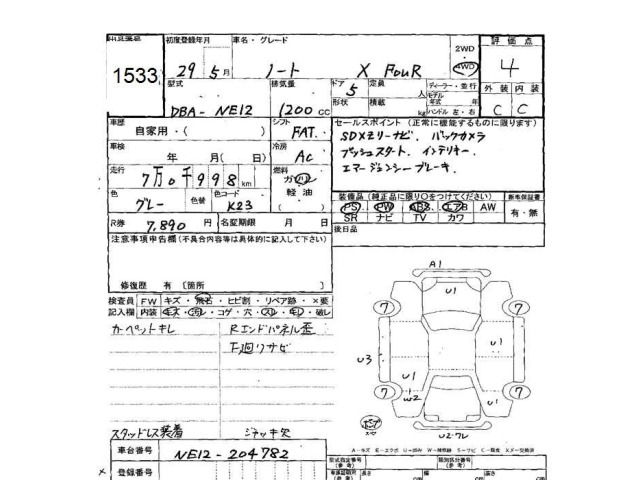 出品票
1533
初度登録年月
29年5月
車名・グレード
ノート X FouR
2WD
4WD
評価点
4
型式
DBA-NE12
排気量
1200cc
ドア
5
形状
定員
人
積載
kg
ディーラー・並行
モデル年式
年式
ハンドル 左・右
外装
内装
C
C
車歴
自家用・( )
シフト
FAT.
車検
年 月( 日)
冷房
AC
走行
7万0千998km
燃料
ガソリン
軽油
色
グレー
色替
色コード
K23
( )
R券
7,890
名変期限
月 日
セールスポイント(正常に機能するものに限ります)
SDメモリーナビ. バックカメラ
プッシュスタート. インテリキー.
エマージェンシーブレーキ.
装備品(純正品に限り○をつけてください)
新車保証書
PS PW ABS エアB AW
SR ナビ TV カワ
有・無
後日品
注意事項申告欄(不具合内容等は具体的に記入して下さい)
修復歴 有 〔箇所 〕
検査員
記入欄
FW キズ・飛石・ヒビ割・リペア跡・×要
内装 キズ・汚レ・コゲ・穴・スレ・キレ・破レ
カーペットキレ
Rエンドパネル歪
下廻リサビ
スタッドレス装着
ジャッキ欠
車台番号
NE12-204782
登録番号
A1
U1
7
7
U3
U1
U1
U1
W2
7
7
U1
U2.ワレ
A-キズ E-エクボ U-凹み W-補修跡 S-サビ C-腐食 X-要交換
型式指定番号
(参考)
類別区分番号
(参考)
長さ
幅
高さ